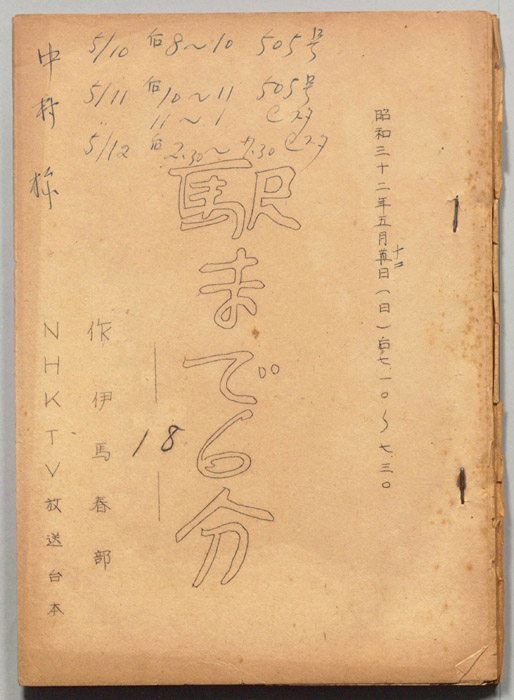 5/10 后8〜10 505号
5/11 后10〜11 505号
〃 11〜1 Cスタ
5/12 后2.30〜7.30 Cスタ
昭和三十二年五月十二日(日)后七.一〇〜七.三〇
駅まで6分
18
作 伊馬春部
中村様
NHKTV放送台本